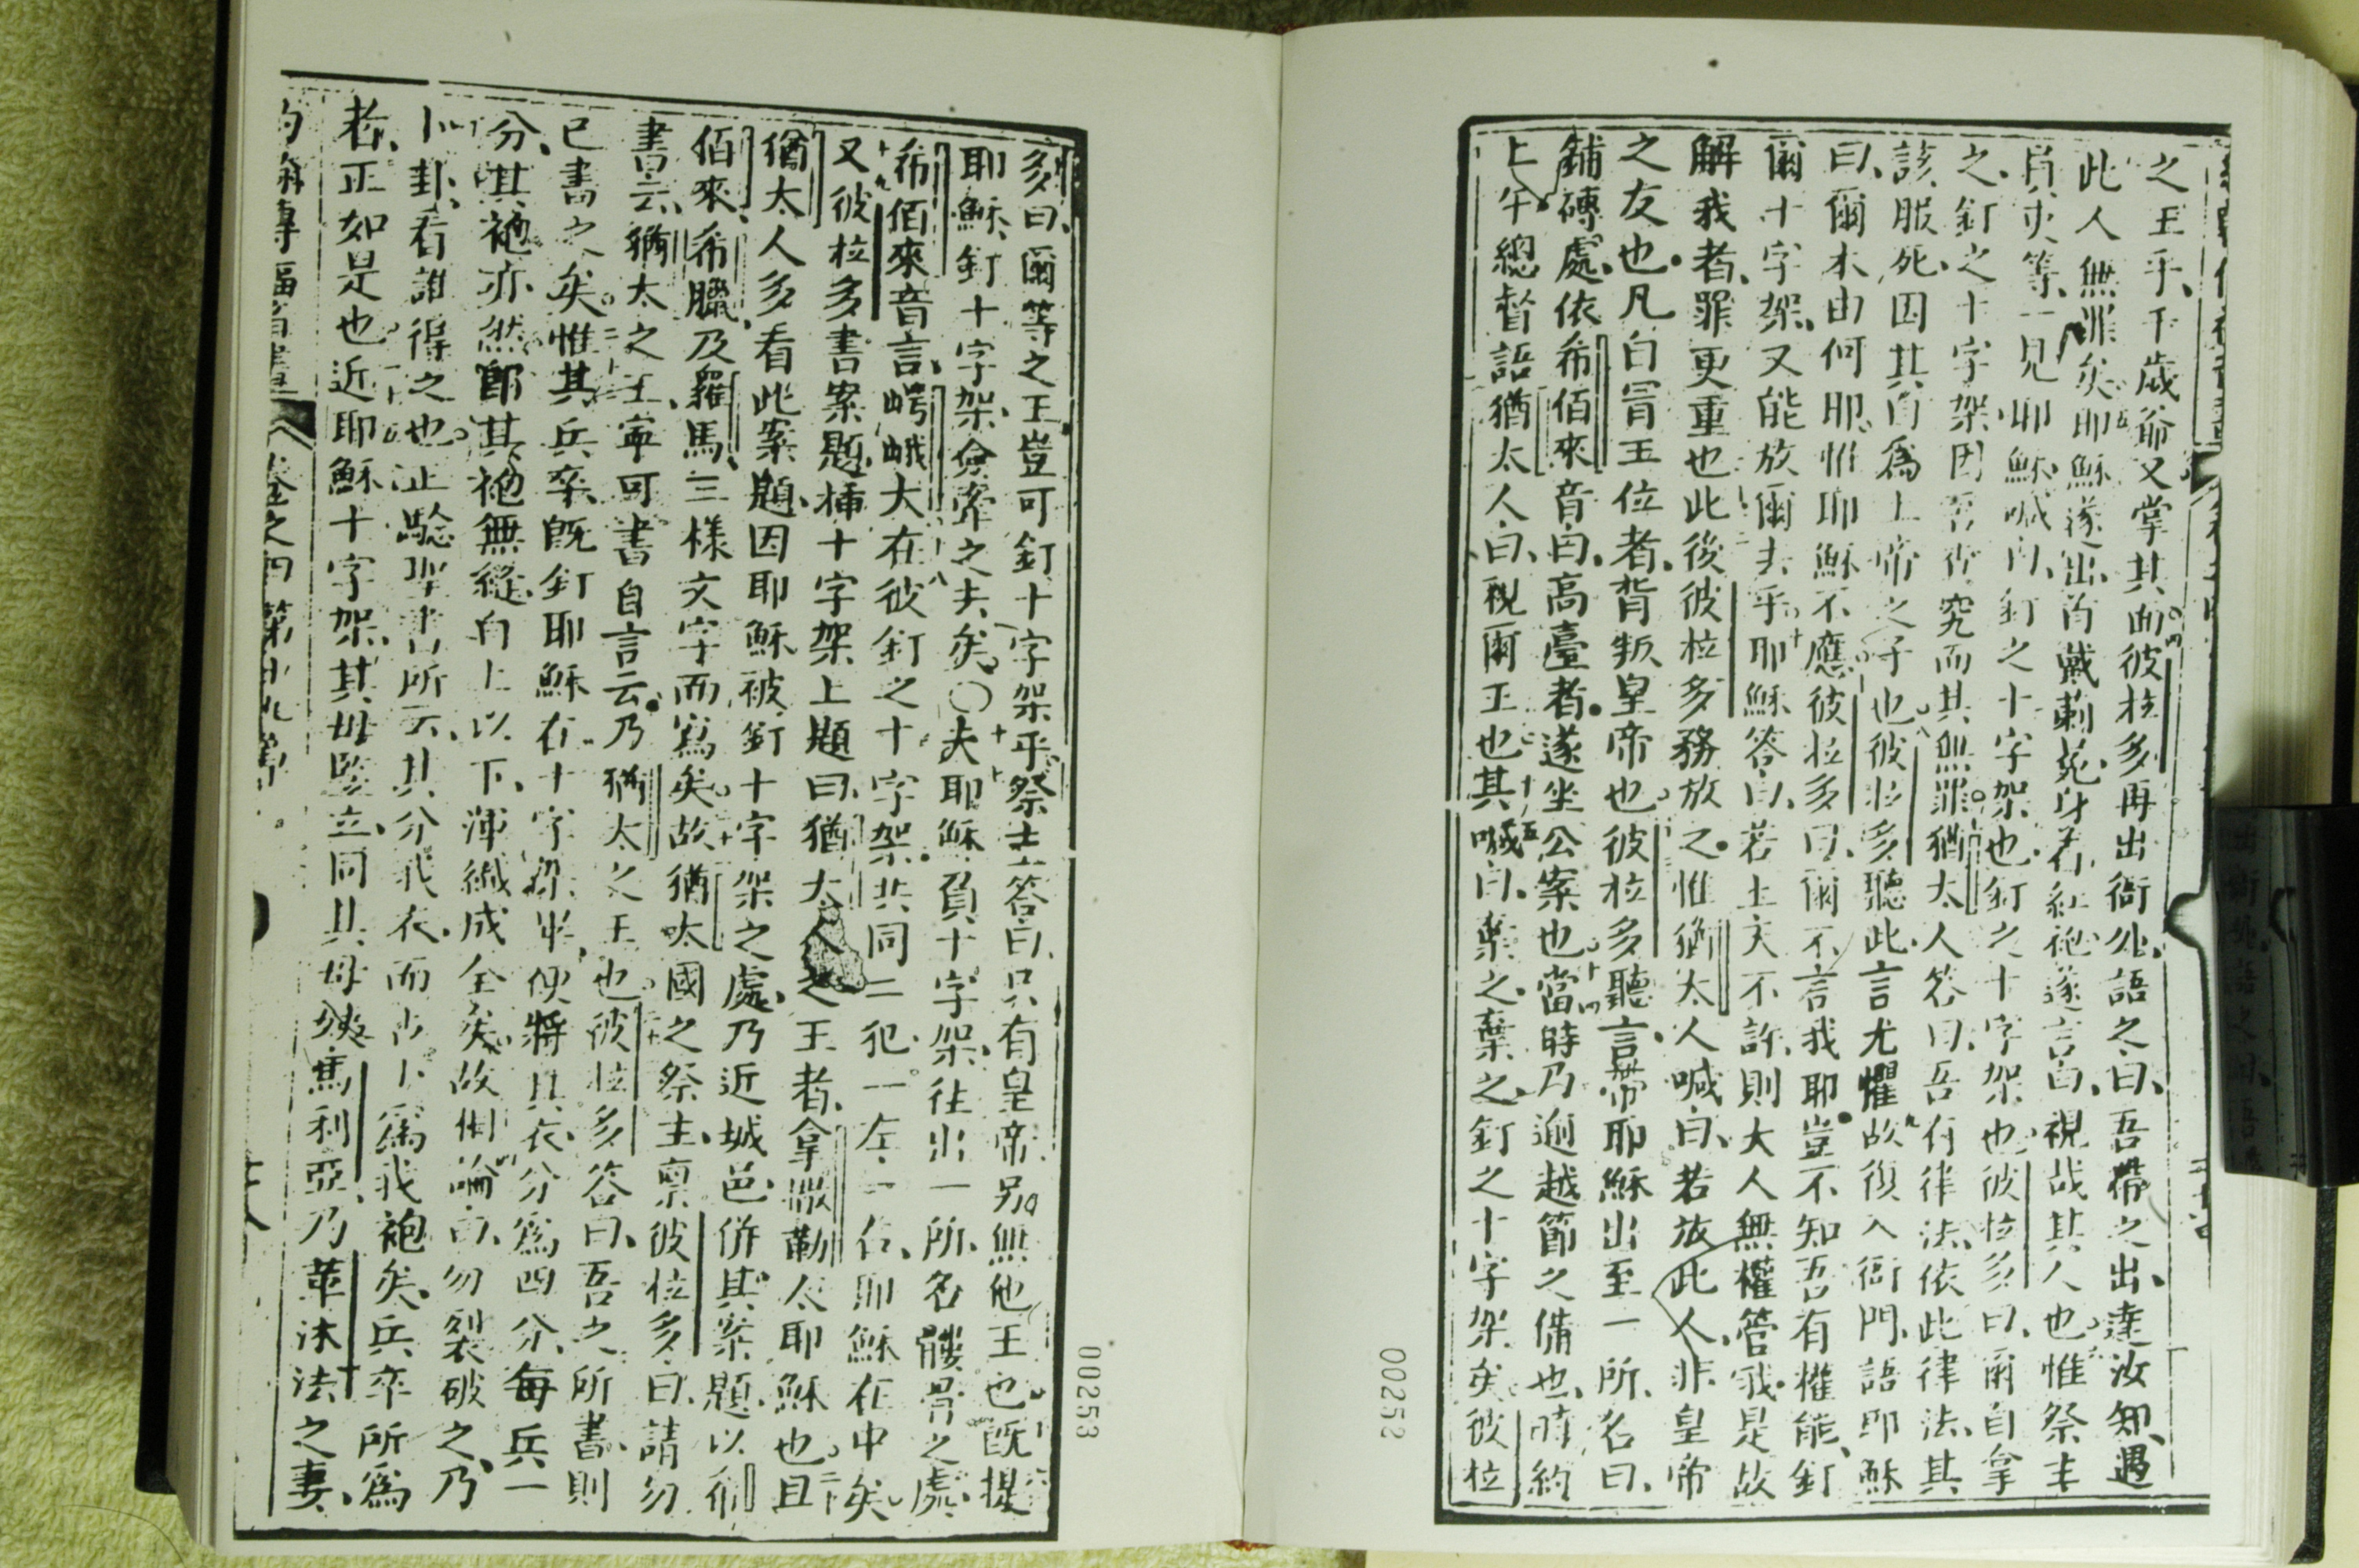 之王乎、千歲爺又掌其面彼拉多再出衙外、語之曰、吾帶之出、達汝知、遇
此人無罪矣耶穌遂出、首戴莿冕、身着紅袍、遂言曰、視哉其人也惟祭主
等、一見耶穌、喊曰、釘之十字架也、釘之十字架也、彼拉多曰、爾自拿
之、釘之十字架、因吾查究而其無罪猶太人答曰、吾有律法、依此律法、其
該服死、因其自爲上帝之子也彼拉多聽此言尤懼故復入衙門、語耶穌
曰、爾本由何耶、惟耶穌不應彼拉多曰、爾不言我耶、豈不知吾有權能、釘
爾十字架、又能放爾去乎、耶穌答曰、若上天不許、則大人無權管我、是故
解我者、罪更重也此後彼拉多務放之、惟猶太人喊曰、若放此人、非皇帝
之友也、凡自冐王位者、背叛皇帝也彼拉多聽言、帶耶穌出至一所、名曰、
鋪磚處、依希佰來音曰、高臺者、遂坐公案也當時乃逾越節之備也、時約
上午總督語猶太人曰、視爾王也其喊曰、棄之、棄之、釘之十字架矣彼拉
00252
多曰、爾等之王豈可釘十字架乎、祭主答曰、只有皇帝、另無他王也既提
耶穌、釘十字架、僉牽之去矣〇夫耶穌負十字架、往出一所、名髏骨之處、
希佰來音言、㗁峨大在彼釘之十字架、共同二犯、一左一右、耶穌在中矣
又彼拉多書案題、插十字架上題曰、猶太人之王者、拿撒勒人耶穌也且
猶太人多看此案題、因耶穌被釘十字架之處、乃近城邑、併其案題、以希
佰來、希臘、及羅馬、三樣文字而寫矣故猶太國之祭主、禀彼拉多曰、請勿
書云、猶太之王、寧可書自言云、乃猶太之王也彼拉多答曰、吾之所書、則
已書之矣惟其兵卒、既釘耶穌在十字架畢、便將其衣、分爲四分、每兵一
分、其袍亦然、郎其袍無縫、自上以下、渾織成全矣、故相論曰、勿裂破之、乃
卜卦、看誰得之也、正驗聖書所云、其分我衣、而占卜爲我袍矣、兵卒所爲
者、正如是也近耶穌十字架、其母竪立同其母姨、馬利亞、乃革流法之妻、
約翰傳福音書 卷之四 第十九章
00253